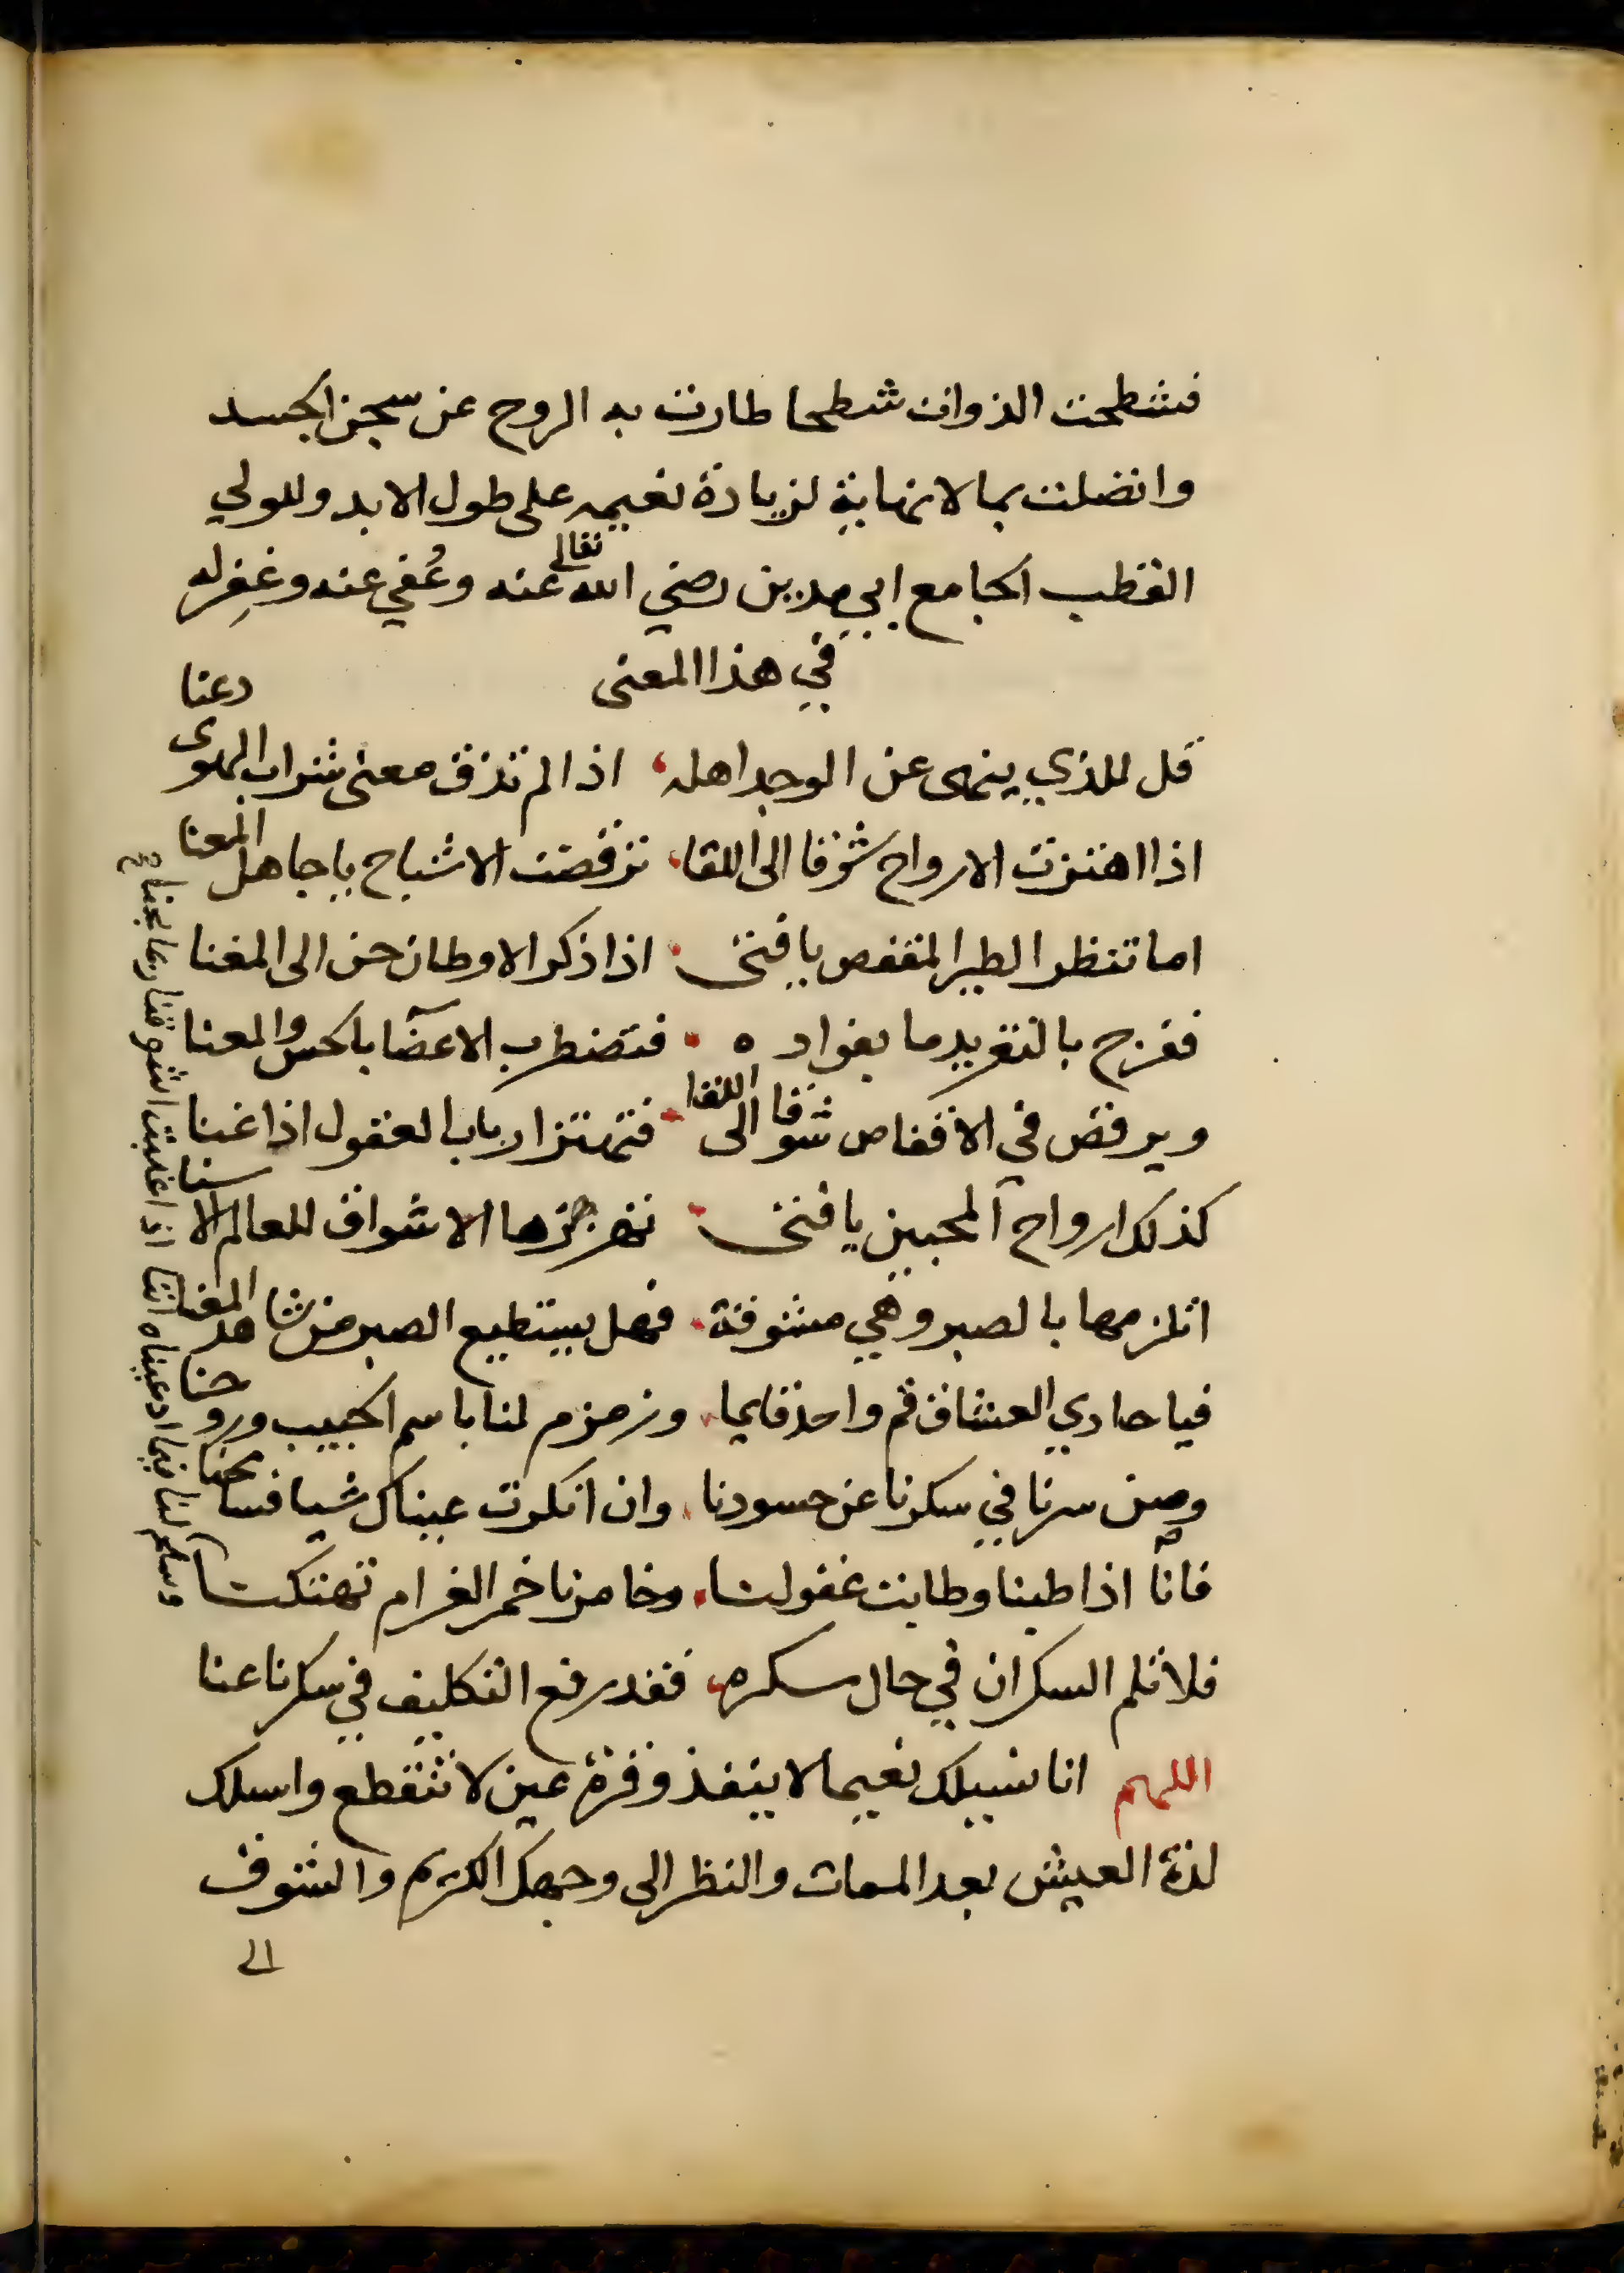 فشطحت الذوات شطحا طارت به الروح عن سجن الجسد
واتصلت بمالانهاية لزيادة نعيمه على طول الابد وللولي
القطب الجامع ابي مدين رضي الله تعالى عنه وعُفي عنه وغفِر له
في هذا المعنى
قل للذي ينهى عن الوجد اهله، اذا لم تذق معنى شراب الهوى دعنا
اذا اهتزت الارواح شوقا الى اللقا، ترقصت الاشباح ياجاهل المعنا
اما تنظر الطير المقفص يافتى، اذا ذكر الاوطان حن الى المغنا
ففرج بالتغريد ما بفواده، فتضطرب الاعضا بالحس والمعنا
ويرقص في الاقفاص شوقا الى اللقا، فتهتز ارباب العقول اذا غنا
كذلك ارواح المحبين يافتى، تهزهزها الاشواق للعالم الاسنا
اتلزمها بالصبر وهي مشوقة، فهل يستطيع الصبر من شاهد المعنا
فياحادي العشاق قم واحد قايما، وزمزم لنا باسم الحبيب وروحنا
وصن سرنا في سكرنا عن حسودنا، وان انكرت عيناك شيا فسامحنا
فانا اذا طبنا وطابت عقولنا، وخامرنا خمر الغرام تهتكنا
فلا تلم السكران في حال سكره، فقد رفع التكليف في سكرنا عنا
اللهم انا نسيلك نعيما لاينفذ وقرة عين لا تنقطع واسلك
لذة العيش بعد الممات والنظر الى وجهك الكريم والشوق
الى
وسلم لنا فيما ادعيناه اننا اذا غلبت اشواقنا ربما بحنا